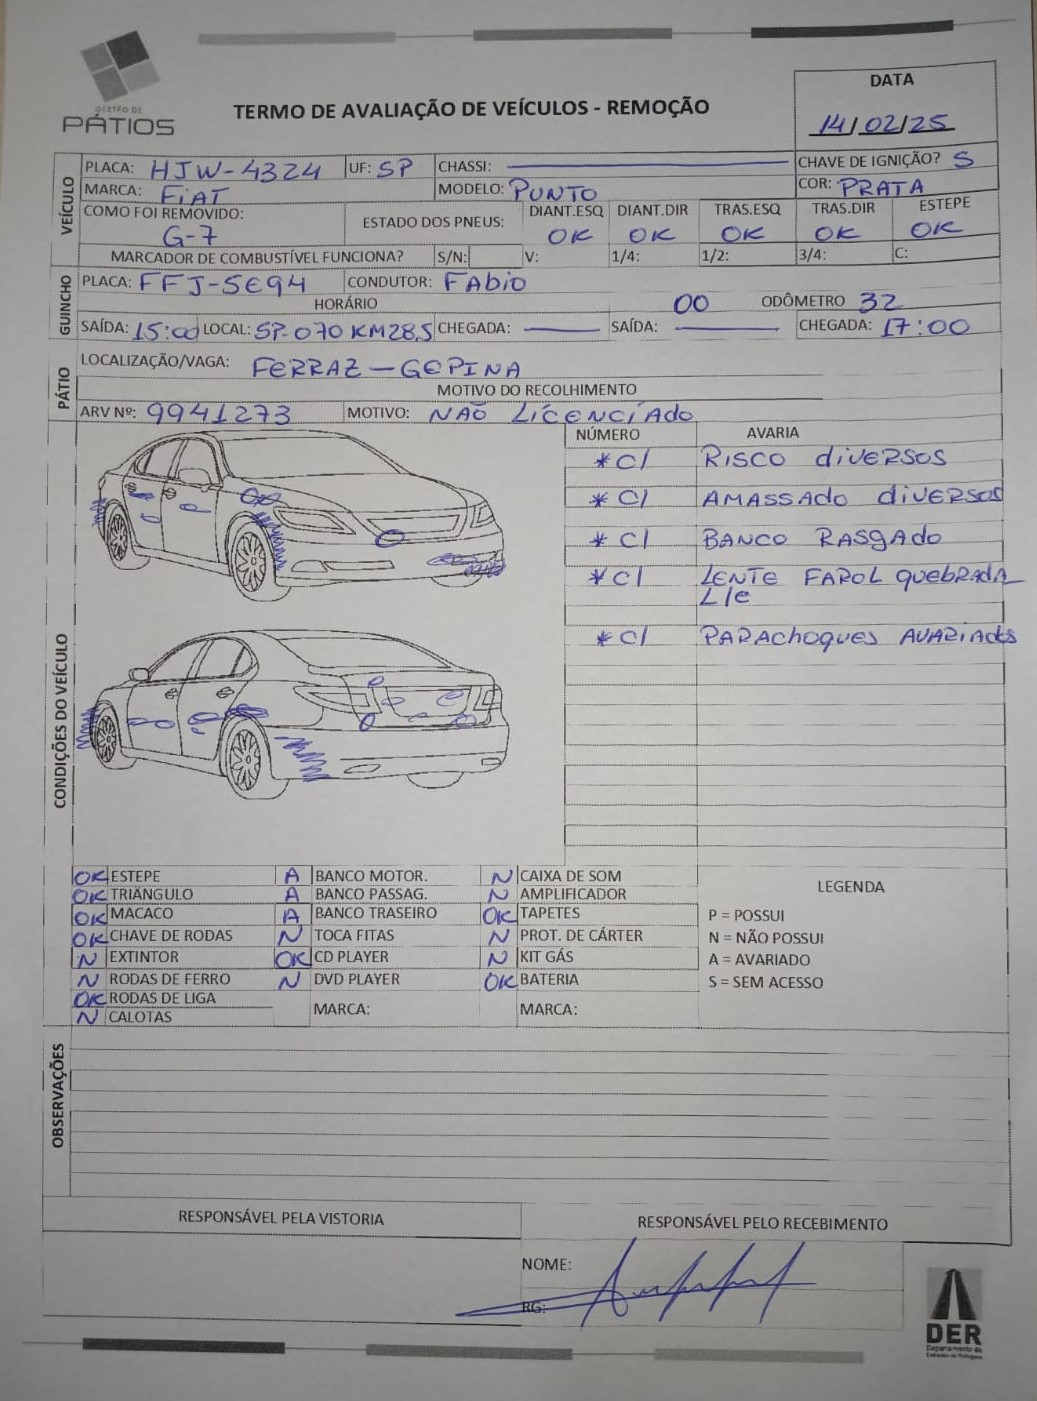 GESTÃO DE
PÁTIOS
TERMO DE AVALIAÇÃO DE VEÍCULOS - REMOÇÃO
DATA
14/02/25
VEÍCULO
PLACA: HJW-4324 UF: SP CHASSI: CHAVE DE IGNIÇÃO? S
MARCA: FiAT MODELO: PUNTO COR: PRATA
COMO FOI REMOVIDO: ESTADO DOS PNEUS: DIANT.ESQ DIANT.DIR TRAS.ESQ TRAS.DIR ESTEPE
G-7 OK OK OK OK OK
MARCADOR DE COMBUSTÍVEL FUNCIONA? S/N: V: 1/4: 1/2: 3/4: C:
GUINCHO
PLACA: FFJ-5E94 CONDUTOR: FAbio
HORÁRIO 00 ODÔMETRO 32
SAÍDA: 15:00 LOCAL: SP-070 KM28,5 CHEGADA: SAÍDA: CHEGADA: 17:00
PÁTIO
LOCALIZAÇÃO/VAGA: FERRAZ - GEPINA
MOTIVO DO RECOLHIMENTO
ARV Nº: 9941273 MOTIVO: NÃO LICENCIADO
CONDIÇÕES DO VEÍCULO
NÚMERO AVARIA
*C/ RISCO diVERSOS
*C/ AMASSADO diVERSOS
*C/ BANCO RASgADO
*C/ LENTE FAROL quebRADA
L/e
*C/ PARAchoques AVARIAdos
OK ESTEPE A BANCO MOTOR. N CAIXA DE SOM
OK TRIÂNGULO A BANCO PASSAG. N AMPLIFICADOR
OK MACACO A BANCO TRASEIRO OK TAPETES
OK CHAVE DE RODAS N TOCA FITAS N PROT. DE CÁRTER
N EXTINTOR OK CD PLAYER N KIT GÁS
N RODAS DE FERRO N DVD PLAYER OK BATERIA
OK RODAS DE LIGA MARCA: MARCA:
N CALOTAS
LEGENDA
P = POSSUI
N = NÃO POSSUI
A = AVARIADO
S = SEM ACESSO
OBSERVAÇÕES
RESPONSÁVEL PELA VISTORIA RESPONSÁVEL PELO RECEBIMENTO
NOME:
RG:
DER